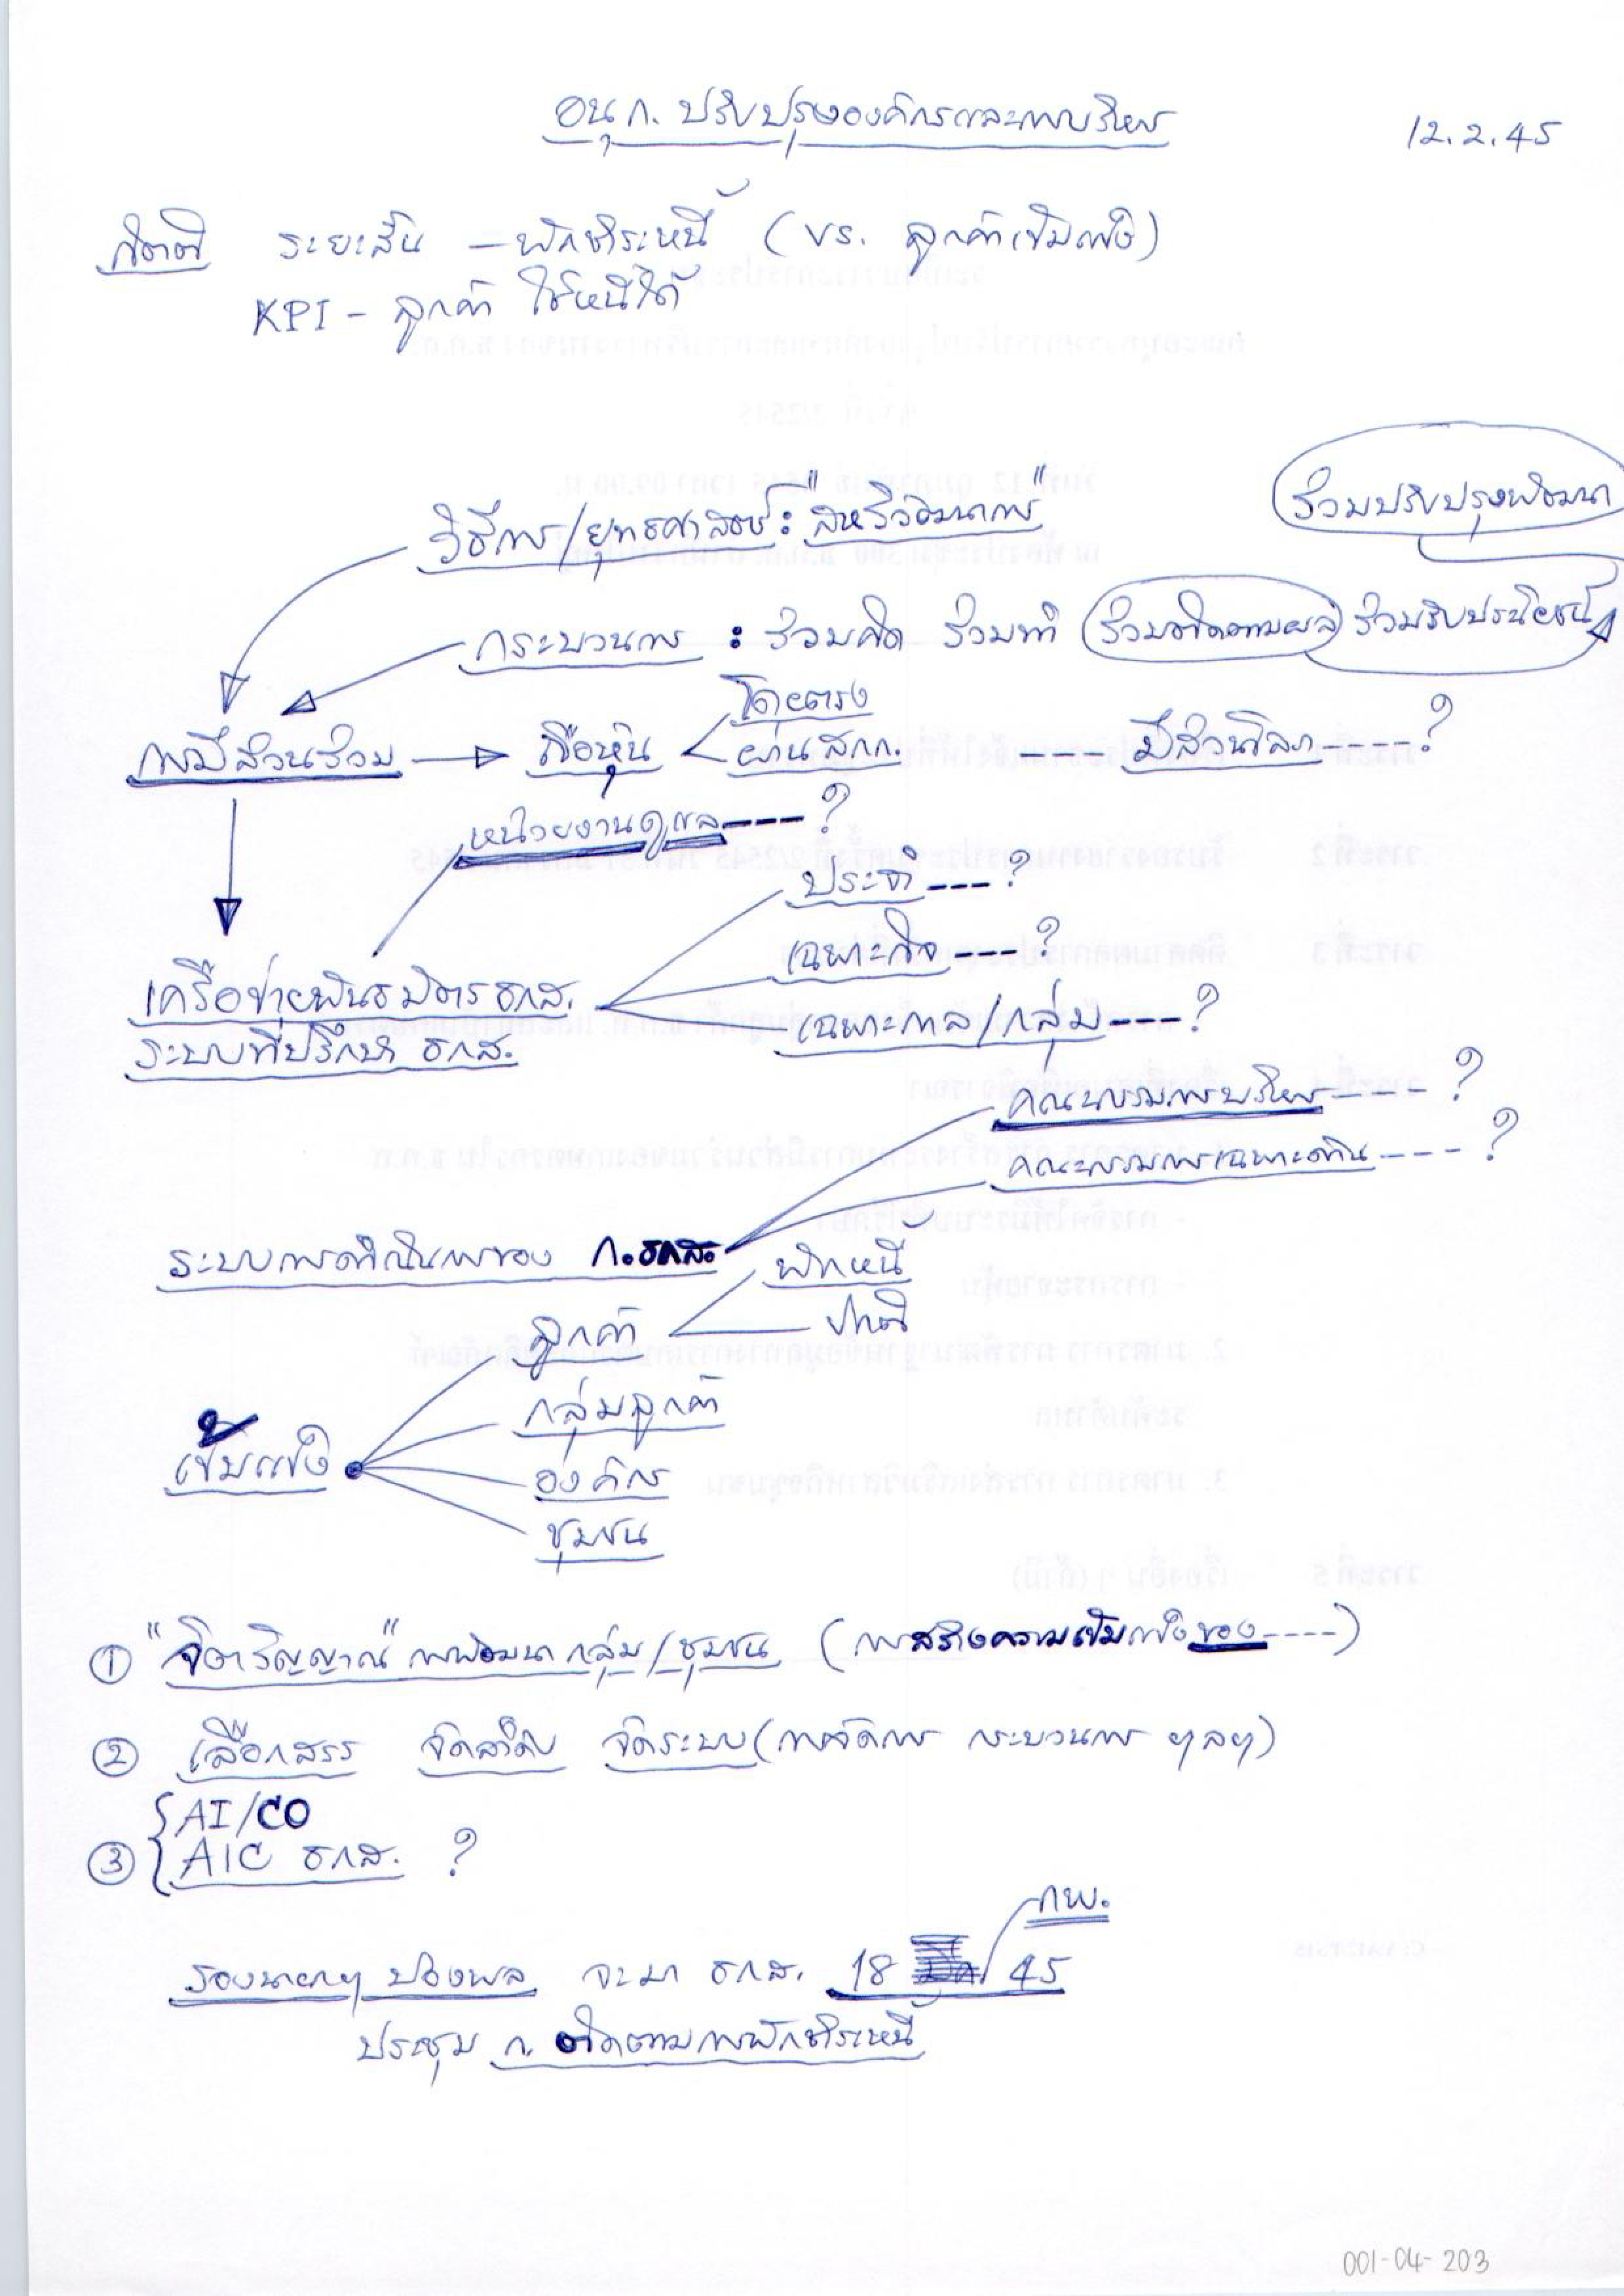 อนุ ก. ปรับปรุงองค์กรและการบริหาร
12.2.45
กิตติ ระยะสั้น – พักชำระหนี้ (vs. ลูกค้าเข้มแข็ง)
KPI – ลูกค้า ใช้หนี้ได้
ร่วมปรับปรุงพัฒนา
วิธีการ/ยุทธศาสตร์ : "สหวิวัฒนาการ"
กระบวนการ : ร่วมคิด ร่วมทำ ร่วมติดตามผล ร่วมรับประโยชน์
การมีส่วนร่วม → ถือหุ้น < โดยตรง
ผ่านสกก. ---- มีส่วนได้ ---- ?
หน่วยงานดูแล ---- ?
ประจำ --- ?
เฉพาะกิจ ---- ?
เครือข่ายพันธมิตร ธกส.
เฉพาะกาล/กลุ่ม --- ?
ระบบที่ปรึกษา ธกส.
คณะกรรมการบริหาร ---- ?
คณะกรรมการเฉพาะด้าน ---- ?
ระบบการดำเนินการของ ก.ธกส.
พักหนี้
ลูกค้า
ปกติ
กลุ่มลูกค้า
เข้มแข็ง
องค์กร
ชุมชน
① "จิตวิญญาณ" การพัฒนา กลุ่ม/ชุมชน (การสร้างความเข้มแข็งของ ----)
② เลือกสรร จัดลำดับ จัดระบบ (การจัดการ กระบวนการ ฯลฯ)
③ AI/CO
AIC ธกส. ?
กพ.
รองนายกฯ ปองพล จะมา ธกส. 18 45
ประชุม ก. ติดตามการพักชำระหนี้
001-04-203